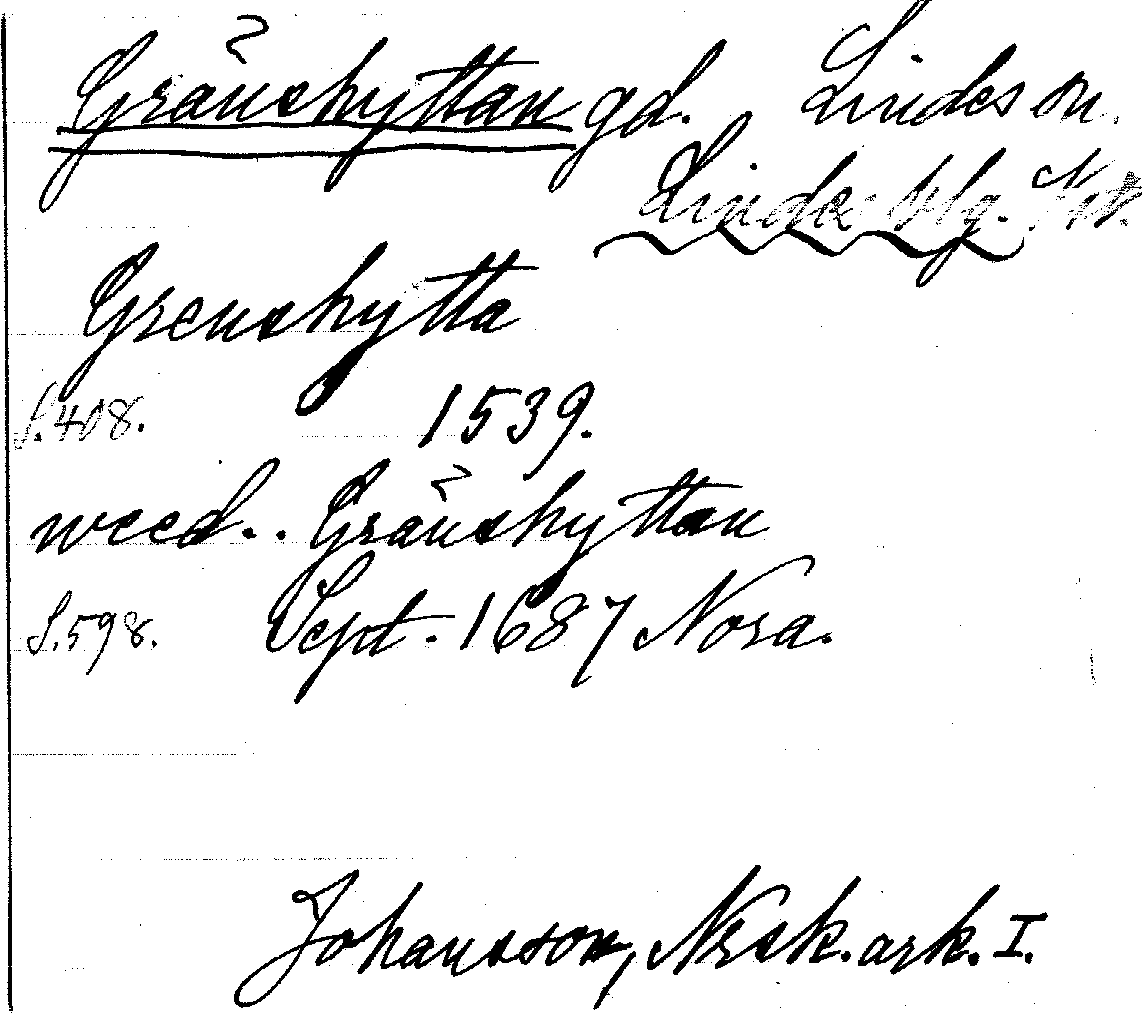 Gränshyttan gd. Lindes sn.
Linde
Grenshytta
S.408. 1539.
weed.. Gränshyttan
S.598. Sept. 1687 Nora.
Johansson, Norsk. ark. I.